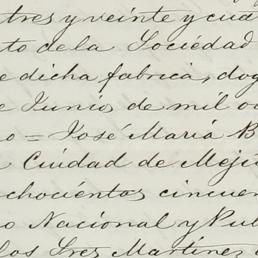 tres y veinte y cua
to de la Sociedad
e dicha fabrica, dog
e Junio de mil oc
o = José María B
Ciudad de Méji
chocientos cincuen
o Nacional y Pub
los Sres Martinez